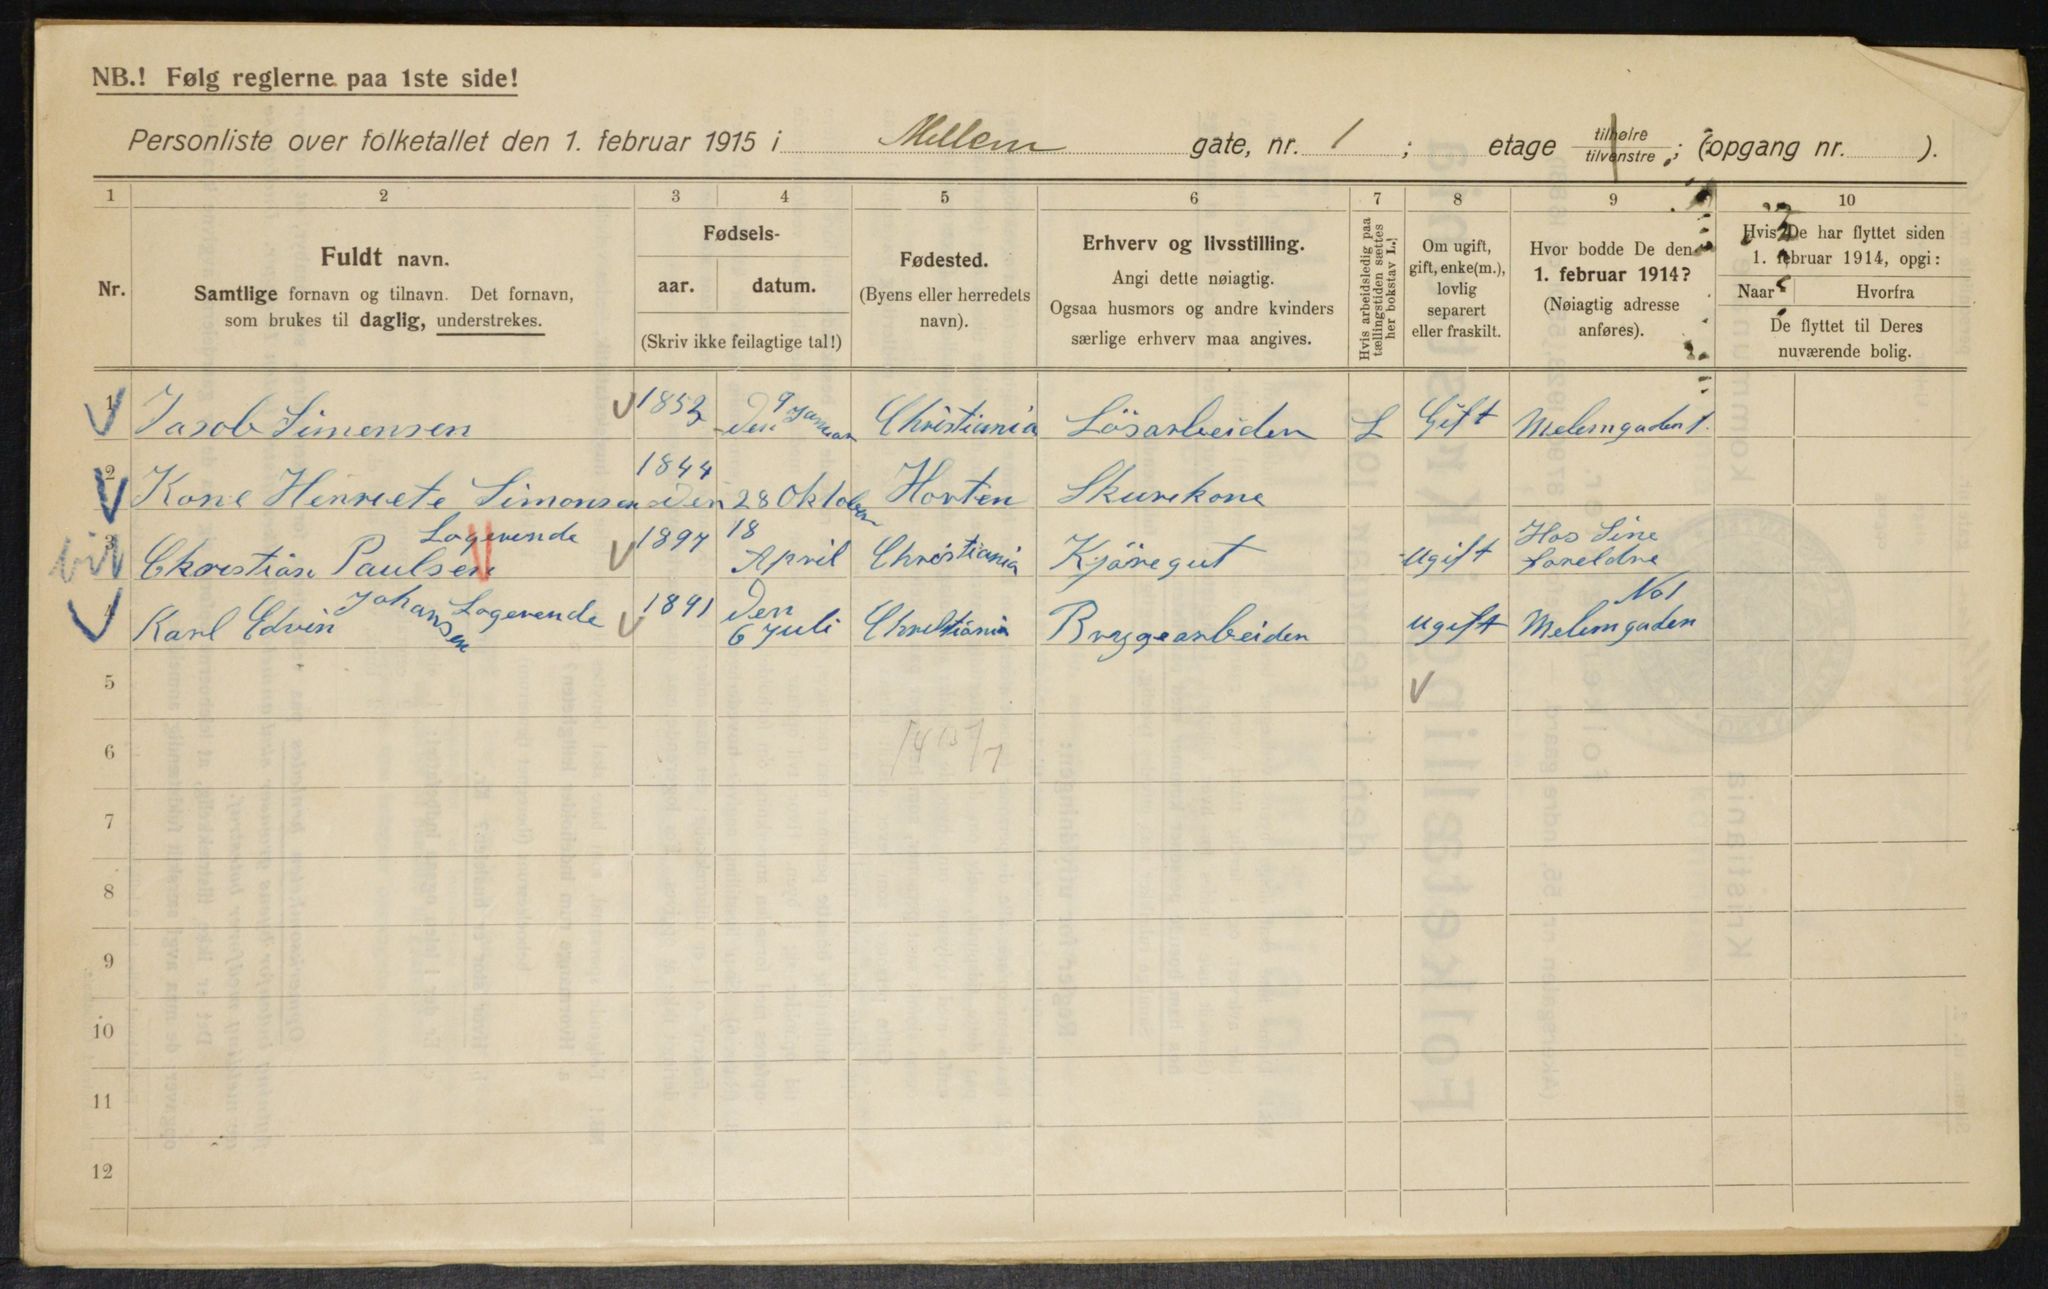 NB.! Følg reglerne paa 1ste side!
Personliste over folketallet den 1. februar 1915 i Mellem gate, nr. 1 ; etage tilhøire tilvenstre ; (opgang nr. ).
1 2 3 4 5 6 7 8 9 10
Nr.
Fuldt navn.
Samtlige fornavn og tilnavn. Det fornavn,
som brukes til daglig, understrekes.
Fødsels-
aar. datum.
(Skriv ikke feilagtige tal!)
Fødested.
(Byens eller herredets
navn).
Erhverv og livsstilling.
Angi dette nøiagtig.
Ogsaa husmors og andre kvinders
særlige erhverv maa angives.
Hvis arbeidsledig paa
tællingstiden sættes
her bokstav L.!
Om ugift,
gift, enke(m.),
lovlig
separert
eller fraskilt.
Hvor bodde De den
1. februar 1914?
(Nøiagtig adresse
anføres).
Hvis De har flyttet siden
1. februar 1914, opgi:
Naar Hvorfra
De flyttet til Deres
nuværende bolig.
1 Jasob Simensen 1852 Den 9 Januar Christiania Lösarbeider L Gift Melemgaden 1.
2 Kone Henriete Simonsen 1844 den 28 Oktober Horten Skurekone
3 Christian Paulsen Logerende 1897 18 April Christiania Kjöregut ugift Hos Sine foreldre
4 Karl Edvin Johansen Logerende 1891 Den 6 Juli Christiania Bryggearbeider ugift Melemgaden No 1
5
6
7
8
9
10
11
12